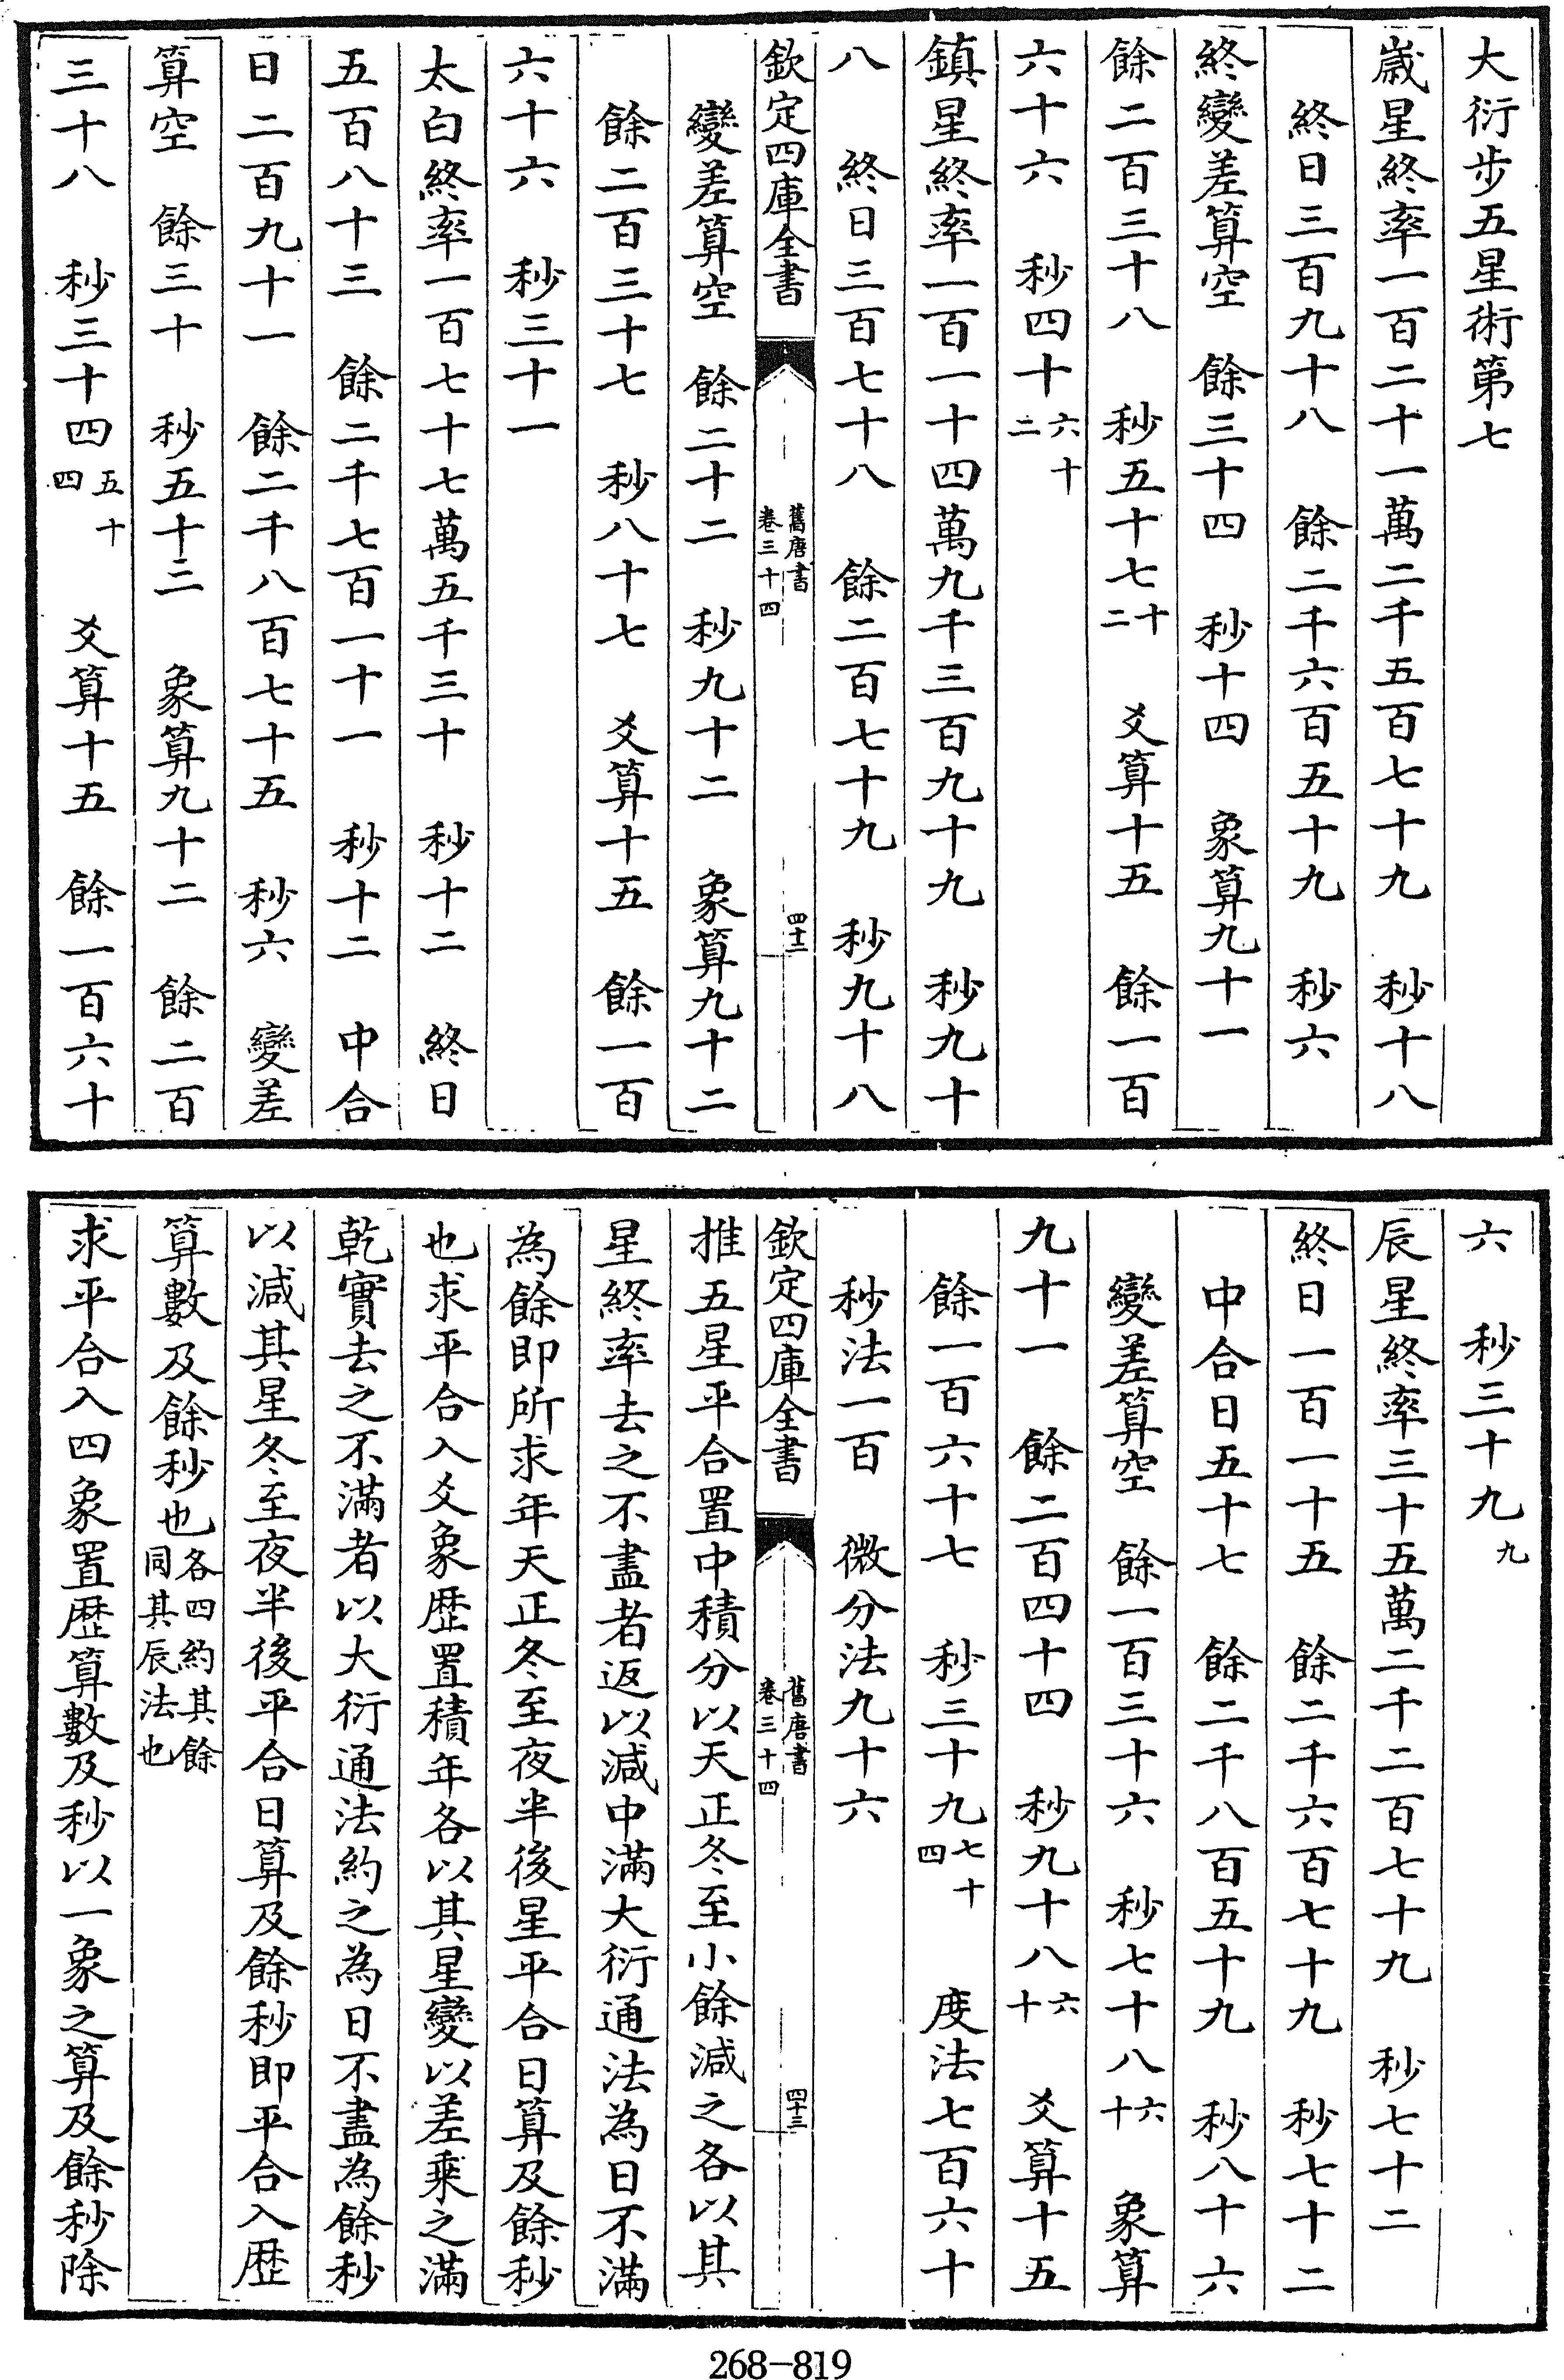 大衍步五星術第七
歲星終率一百二十一萬二千五百七十九 秒十八
終日三百九十八 餘二千六百五十九 秒六
終變差算空 餘三十四 秒十四 象算九十一
餘二百三十八 秒五十七十二 爻算十五 餘一百
六十六 秒四十六十二
鎮星終率一百一十四萬九千三百九十九 秒九十
八 終日三百七十八 餘二百七十九 秒九十八
欽定四庫全書 舊唐書卷三十四 四十二
變差算空 餘二十二 秒九十二 象算九十二
餘二百三十七 秒八十七 爻算十五 餘一百
六十六 秒三十一
太白終率一百七十七萬五千三十 秒十二 終日
五百八十三 餘二千七百一十一 秒十二 中合
日二百九十一 餘二千八百七十五 秒六 變差
算空 餘三十 秒五十三 象算九十二 餘二百
三十八 秒三十四五十四 爻算十五 餘一百六十
六 秒三十九九
辰星終率三十五萬二千二百七十九 秒七十二
終日一百一十五 餘二千六百七十九 秒七十二
中合日五十七 餘二千八百五十九 秒八十六
變差算空 餘一百三十六 秒七十八六十 象算
九十一 餘二百四十四 秒九十八六十 爻算十五
餘一百六十七 秒三十九七十四 度法七百六十
秒法一百 微分法九十六
欽定四庫全書 舊唐書卷三十四 四十三
推五星平合置中積分以天正冬至小餘減之各以其
星終率去之不盡者返以減中滿大衍通法為日不滿
為餘即所求年天正冬至夜半後星平合日算及餘秒
也求平合入爻象歴置積年各以其星變以差乘之滿
乾實去之不滿者以大衍通法約之為日不盡為餘秒
以減其星冬至夜半後平合日算及餘秒即平合入歴
算數及餘秒也各四約其餘同其辰法也
求平合入四象置歴算數及秒以一象之算及餘秒除
268-819